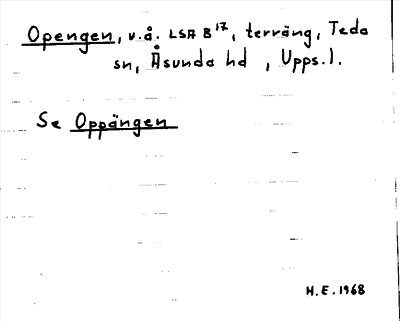 Opengen, v.å. LSA B¹⁷, terräng, Teda
sn, Åsunda hd, Upps.l.
Se Oppängen
H.E. 1968